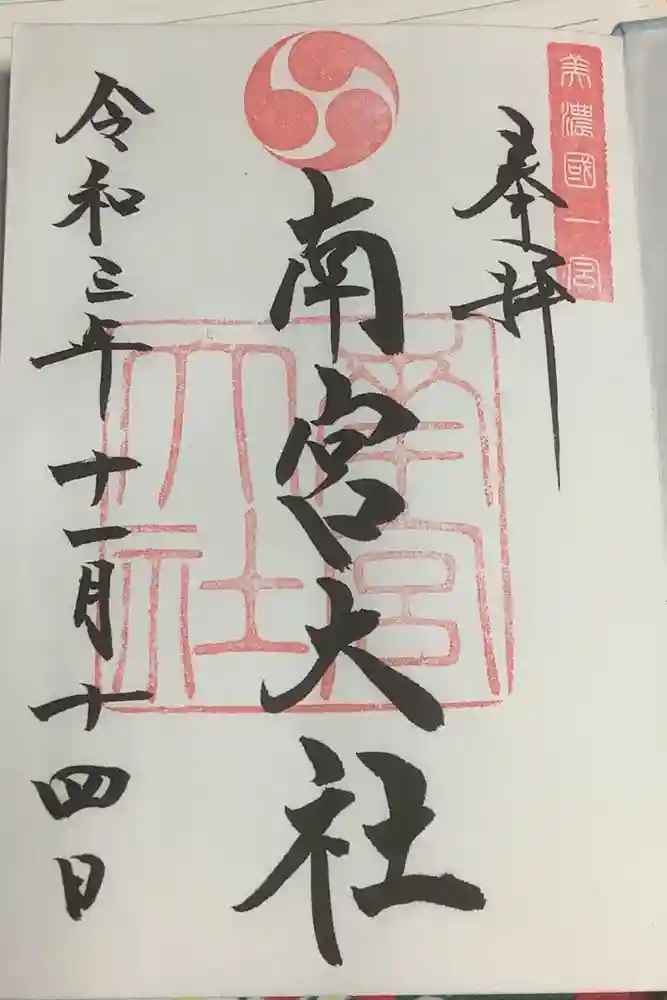 美濃國一宮
奉拝
南宮大社
南宮大社
令和三年十一月十四日